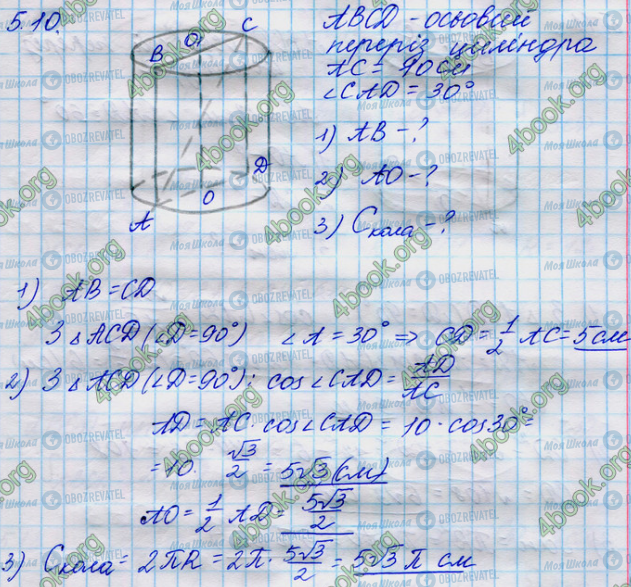 5.10.
ABCD - осьовий
переріз циліндра
AC = 10см
∠CAD = 30°
1) AB - ?
2) AO - ?
3) Cкола - ?
B O₁ C
A O D
1) AB = CD
З △ACD (∠D=90°) ∠A = 30° => CD = 1/2 AC = 5см
2) З △ACD (∠D=90°): cos∠CAD = AD/AC
AD = AC · cos∠CAD = 10 · cos30° =
= 10 · √3/2 = 5√3 (см)
AO = 1/2 AD = 5√3/2
3) Cкола = 2πR = 2π · 5√3/2 = 5√3 π см
4book.org
Моя Школа
OBOZREVATEL